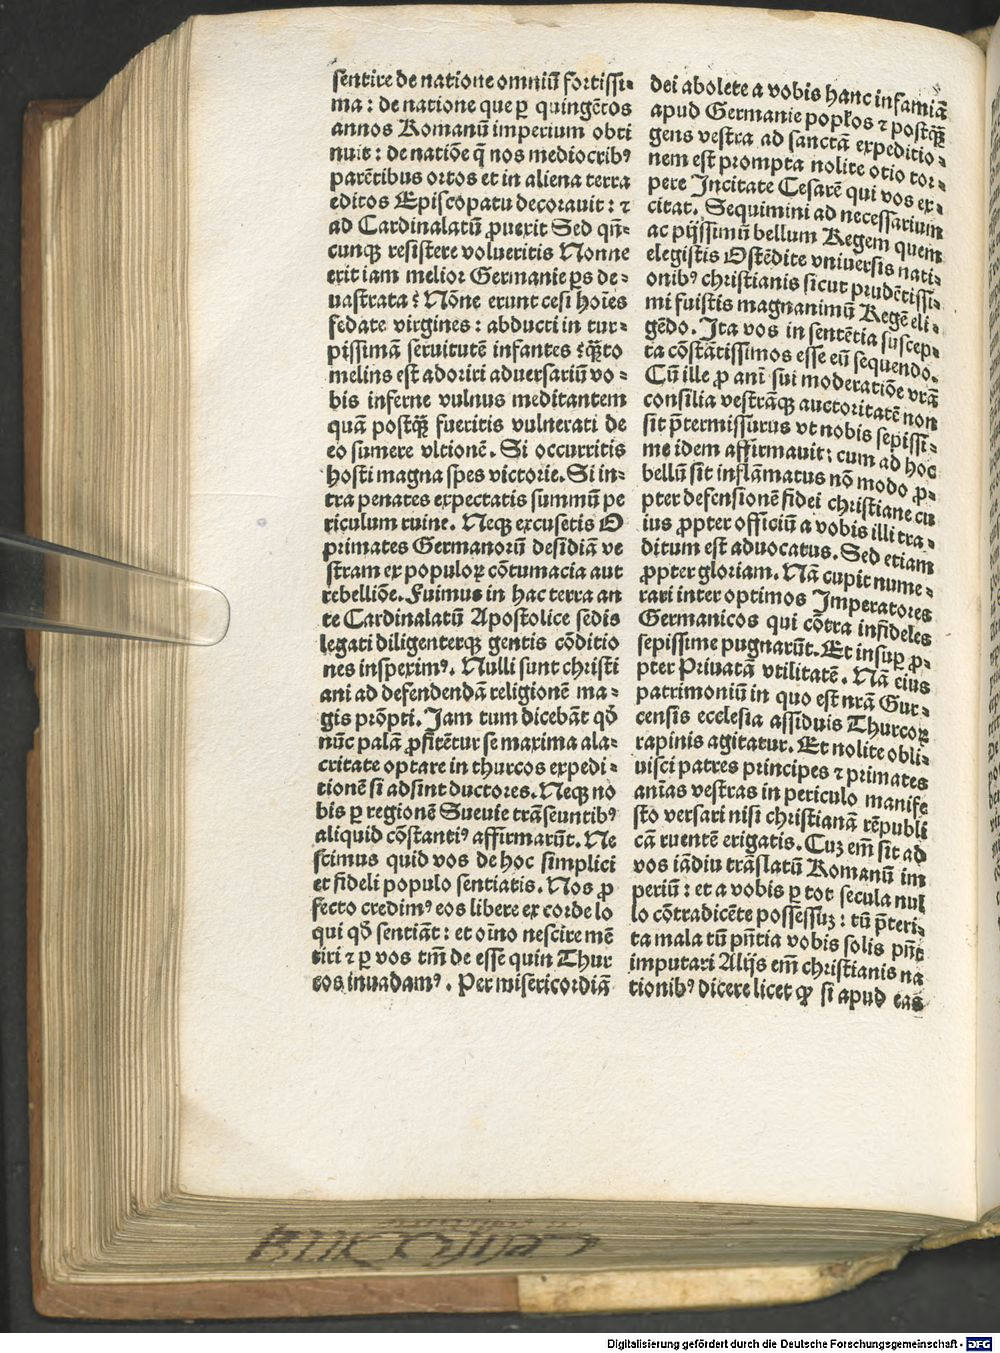 sentire de natione omniū fortissi-
ma : de natione que ꝑ quingētos
annos Romanū imperium obti
nuit : de natiōe q̄ nos mediocribꝰ
parētibus ortos et in aliena terra
editos Episcopatu decorauit : ⁊
ad Cardinalatū ꝓuexit Sed qn̄-
cunqꝫ resistere volueritis Nonne
erit iam melior Germanie ps de-
uastrata ? Nōne erunt cesi hoīes
fedate virgines : abducti in tur-
pissimā seruitutē infantes ? q̄ꝫto
melius est adoriri aduersariū vo-
bis inferne vulnus meditantem
quā postq̄ꝫ fueritis vulnerati de
eo sumere vltionē . Si occurritis
hosti magna spes victorie . Si in-
tra penates expectatis summū pe
riculum ruine . Neqꝫ excusetis O
primates Germanorū desidiā ve
stram ex populoꝝ cōtumacia aut
rebelliōe . Fuimus in hac terra an
te Cardinalatū Apostolice sedis
legati diligenterqꝫ gentis cōditio
nes inspeximꝰ . Nulli sunt christi
ani ad defendendā religionē ma-
gis prōpti . Jam tum dicebāt qd̄
nūc palā ꝓfitētur se maxima ala-
critate optare in thurcos expedi-
tionē si adsint ductores . Neqꝫ no
bis ꝑ regionē Sueuie trāseuntibꝰ
aliquid cōstantiꝰ affirmarūt . Ne
scimus quid vos de hoc simplici
et fideli populo sentiatis . Nos ꝓ
fecto credimꝰ eos libere ex corde lo
qui qd̄ sentiāt : et oīno nescire mē
tiri ⁊ ꝑ vos tm̄ de esse quin Thur
cos inuadamꝰ . Per misericordiā
dei abolete a vobis hanc infamiā
apud Germanie popłos ⁊ postq̄ꝫ
gens vestra ad sanctā expeditio-
nem est prompta nolite otio tor-
pere Incitate Cesarē qui vos ex-
citat . Sequimini ad necessarium
ac pijssimū bellum Regem quem
elegistis Ostēdite vniuersis nati-
onibꝰ christianis sicut prudētissi-
mi fuistis magnanimū Regē eli-
gēdo . Ita vos in sentētia suscep-
ta cōstātissimos esse eū sequendo .
Cū ille ꝓ anī sui moderatiōe vrā
consilia vestrāqꝫ auctoritatē non
sit p̄termissurus vt nobis sepissi-
me idem affirmauit : cum ad hoc
bellū sit inflāmatus nō modo ꝓ-
pter defensionē fidei christiane cu
ius ꝓpter officiū a vobis illi tra-
ditum est aduocatus . Sed etiam
ꝓpter gloriam . Nā cupit nume-
rari inter optimos Imperatores
Germanicos qui cōtra infideles
sepissime pugnarūt . Et insuꝑ ꝓ-
pter Priuatā vtilitatē . Nā eius
patrimoniū in quo est nrā Gur-
censis ecclesia assiduis Thurcoꝝ
rapinis agitatur . Et nolite obli-
uisci patres principes ⁊ primates
anīas vestras in periculo manife
sto versari nisi christianā rēpubli
cā ruentē erigatis . Cuꝫ em̄ sit ad
vos iādiu trāslatū Romanū im
periū : et a vobis ꝑ tot secula nul
lo cōtradicēte possessuꝫ : tū p̄teri-
ta mala tū pn̄tia vobis solis pn̄t
imputari Alijs em̄ christianis na
tionibꝰ dicere licet ꝙ si apud eas
Digitalisierung gefördert durch die Deutsche Forschungsgemeinschaft - DFG